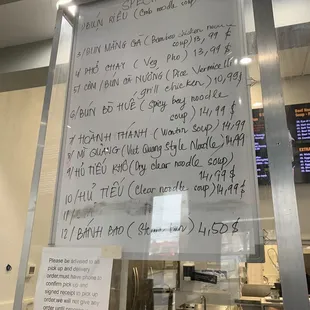 SPECI
1/ BÚN RIÊU (Crab noodle soup)
3/ BÚN MĂNG GÀ (Bamboo chicken noodle soup) 13,99 $
4/ PHỞ CHAY (Veg Pho) 13,99 $
5/ CƠM / BÚN GÀ NƯỚNG (Rice Vermicelli
grill chicken) 10,99$
6/ BÚN BÒ HUẾ (Spicy beef noodle
soup) 14,99 $
7/ HOÀNH THÁNH (Wonton soup) 14,99
8/ MÌ QUẢNG (Viet Quang Style Noodle) 14,99$
9/ HỦ TIẾU KHÔ (Dry clear noodle soup)
14,99$
10/ HỦ TIẾU (Clear noodle soup) 14,99$
11/
12/ BÁNH BAO (Steam bun) 4,50 $
Please be advised to all
pick up and delivery
order must have phone to
confirm pick up and
signed receipt to pick up
order we will not give
any order